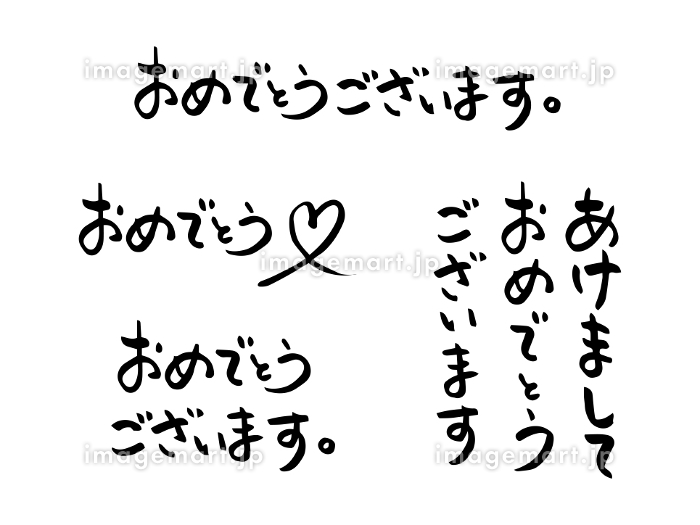 imagemart.jp imagemart.jp
おめでとうございます。
おめでとう
imagemart.jp
おめでとう
ございます。
あけまして
おめでとう
ございます
imagemart.jp imagemart.jp